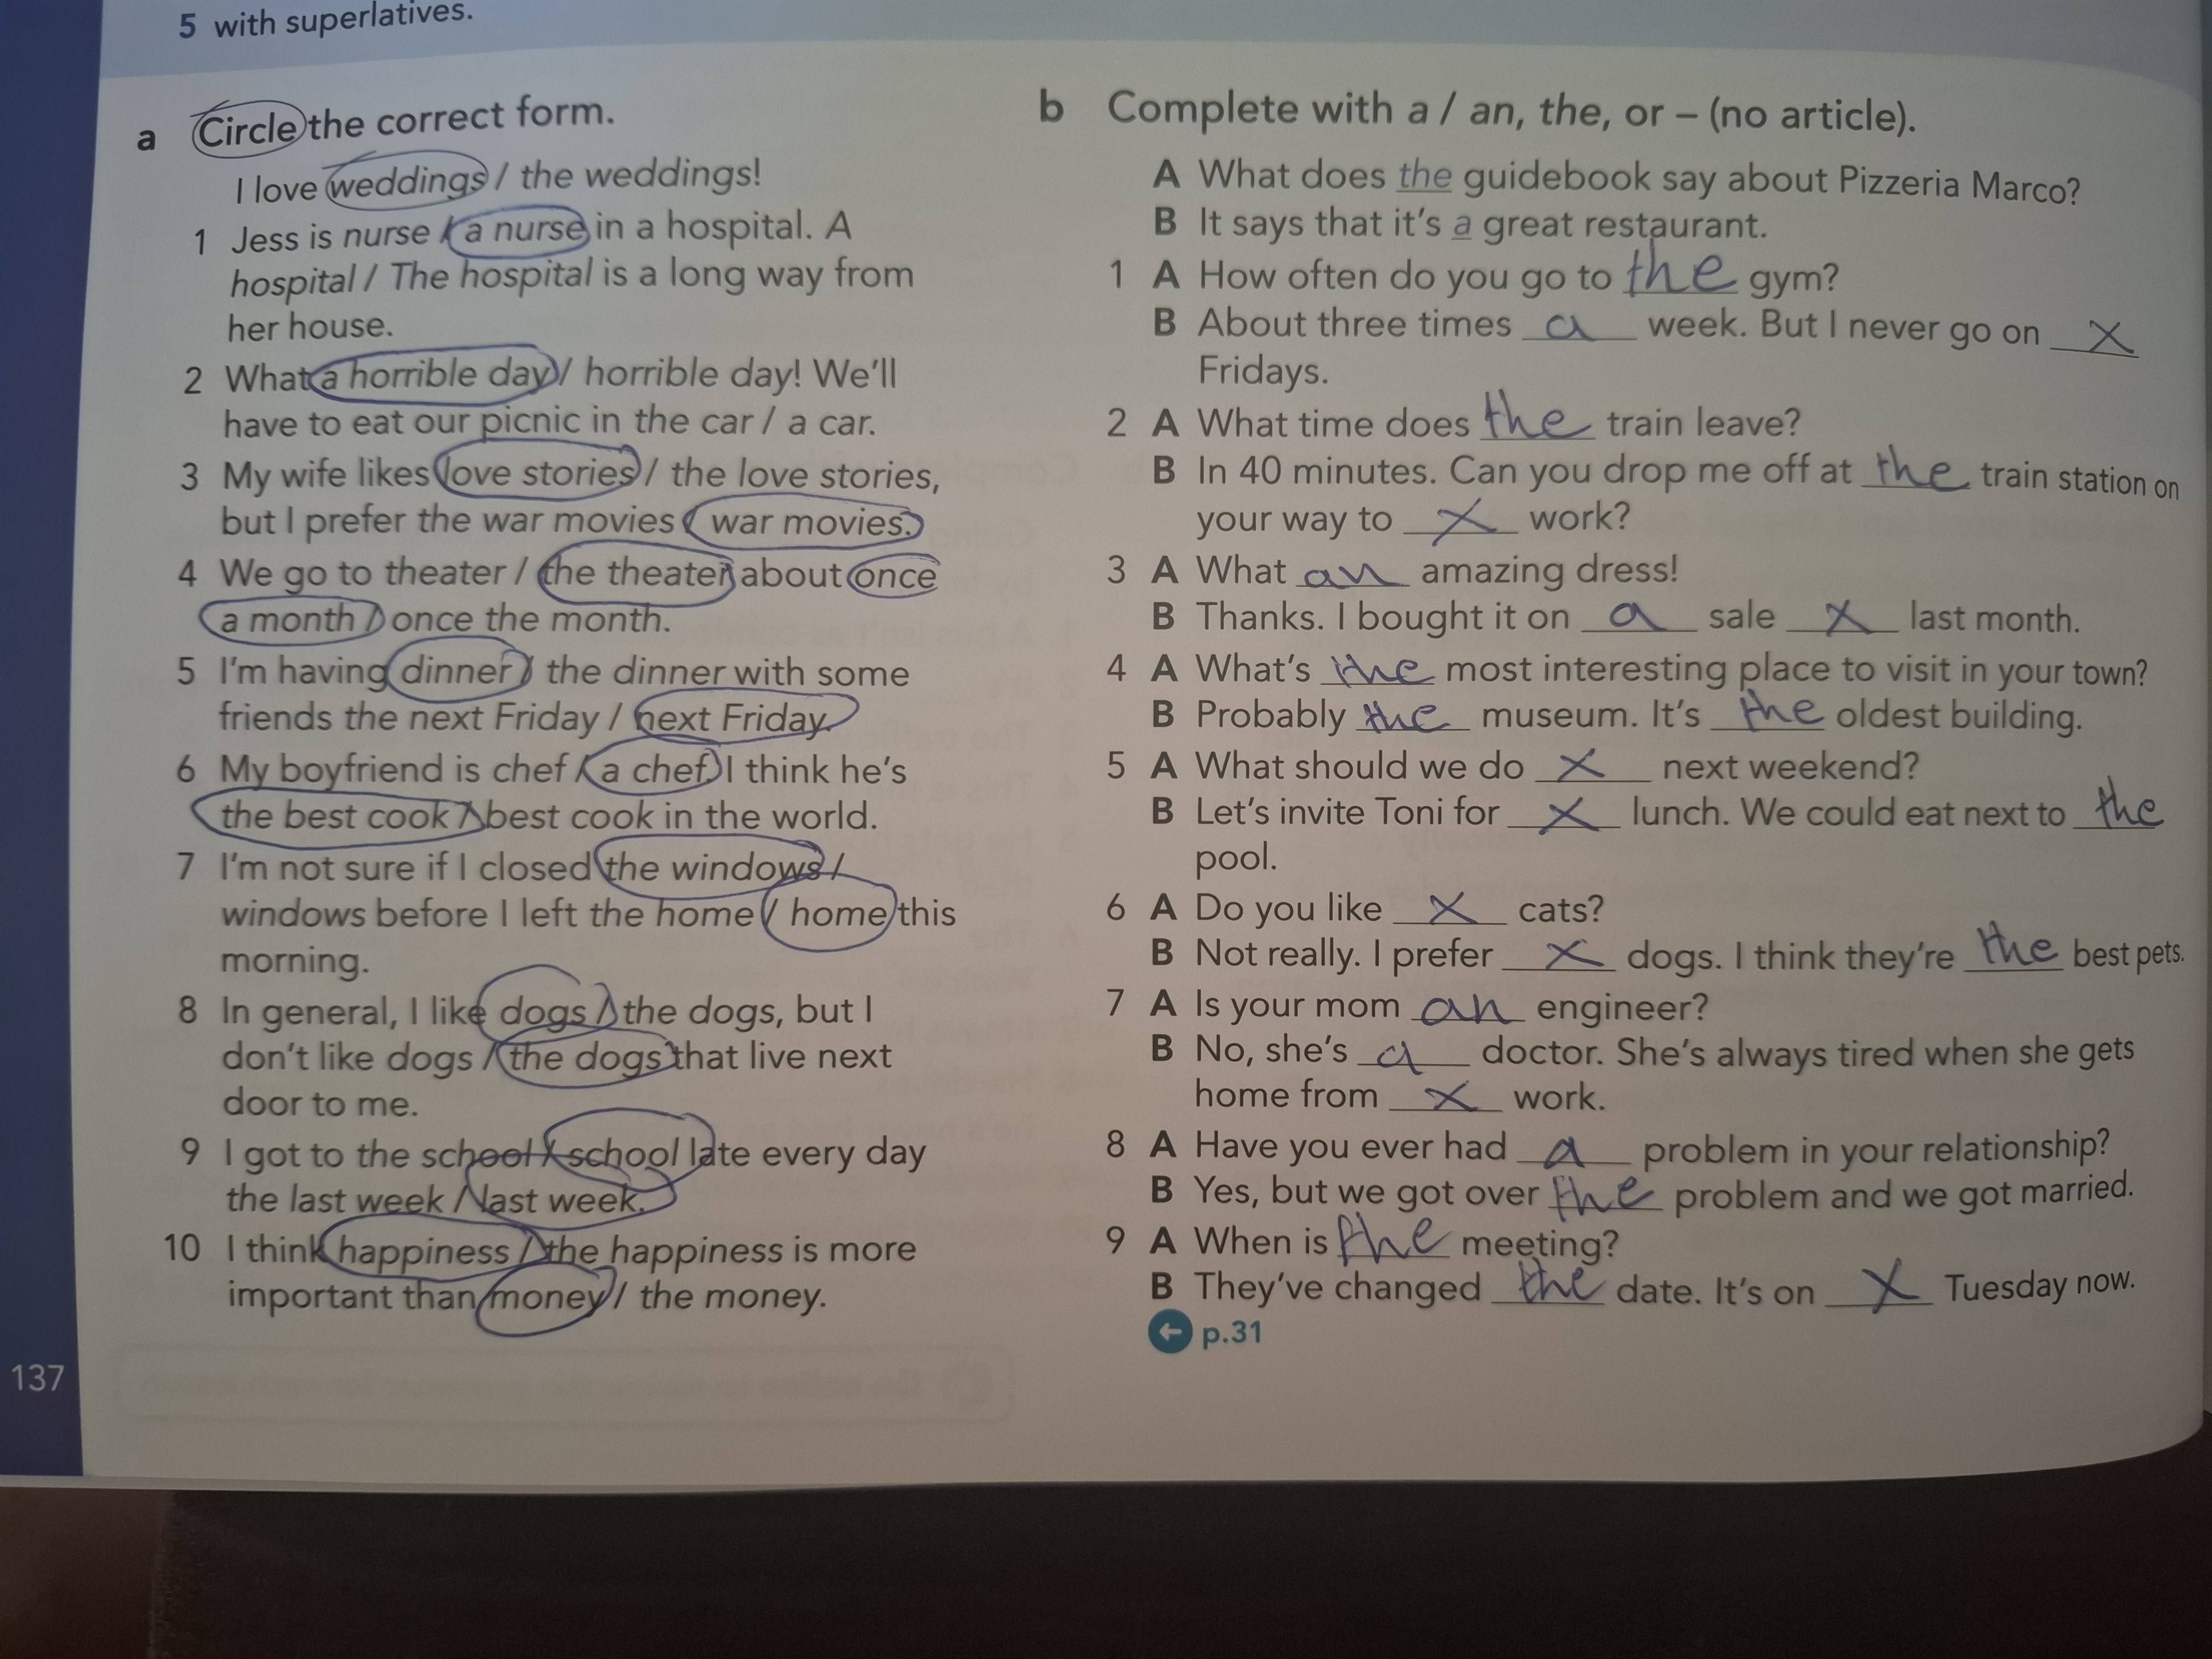 5 with superlatives.
a Circle the correct form.
I love weddings / the weddings!
1 Jess is nurse / a nurse in a hospital. A
hospital / The hospital is a long way from
her house.
2 What a horrible day / horrible day! We'll
have to eat our picnic in the car / a car.
3 My wife likes love stories / the love stories,
but I prefer the war movies / war movies.
4 We go to theater / the theater about once
a month / once the month.
5 I'm having dinner / the dinner with some
friends the next Friday / next Friday.
6 My boyfriend is chef / a chef. I think he's
the best cook / best cook in the world.
7 I'm not sure if I closed the windows /
windows before I left the home / home this
morning.
8 In general, I like dogs / the dogs, but I
don't like dogs / the dogs that live next
door to me.
9 I got to the school / school late every day
the last week / last week.
10 I think happiness / the happiness is more
important than money / the money.
137
b Complete with a / an, the, or – (no article).
A What does the guidebook say about Pizzeria Marco?
B It says that it's a great restaurant.
1 A How often do you go to the gym?
B About three times a week. But I never go on x
Fridays.
2 A What time does the train leave?
B In 40 minutes. Can you drop me off at the train station on
your way to x work?
3 A What an amazing dress!
B Thanks. I bought it on a sale x last month.
4 A What's the most interesting place to visit in your town?
B Probably the museum. It's the oldest building.
5 A What should we do x next weekend?
B Let's invite Toni for x lunch. We could eat next to the
pool.
6 A Do you like x cats?
B Not really. I prefer x dogs. I think they're the best pets.
7 A Is your mom an engineer?
B No, she's a doctor. She's always tired when she gets
home from x work.
8 A Have you ever had a problem in your relationship?
B Yes, but we got over the problem and we got married.
9 A When is the meeting?
B They've changed the date. It's on x Tuesday now.
← p.31